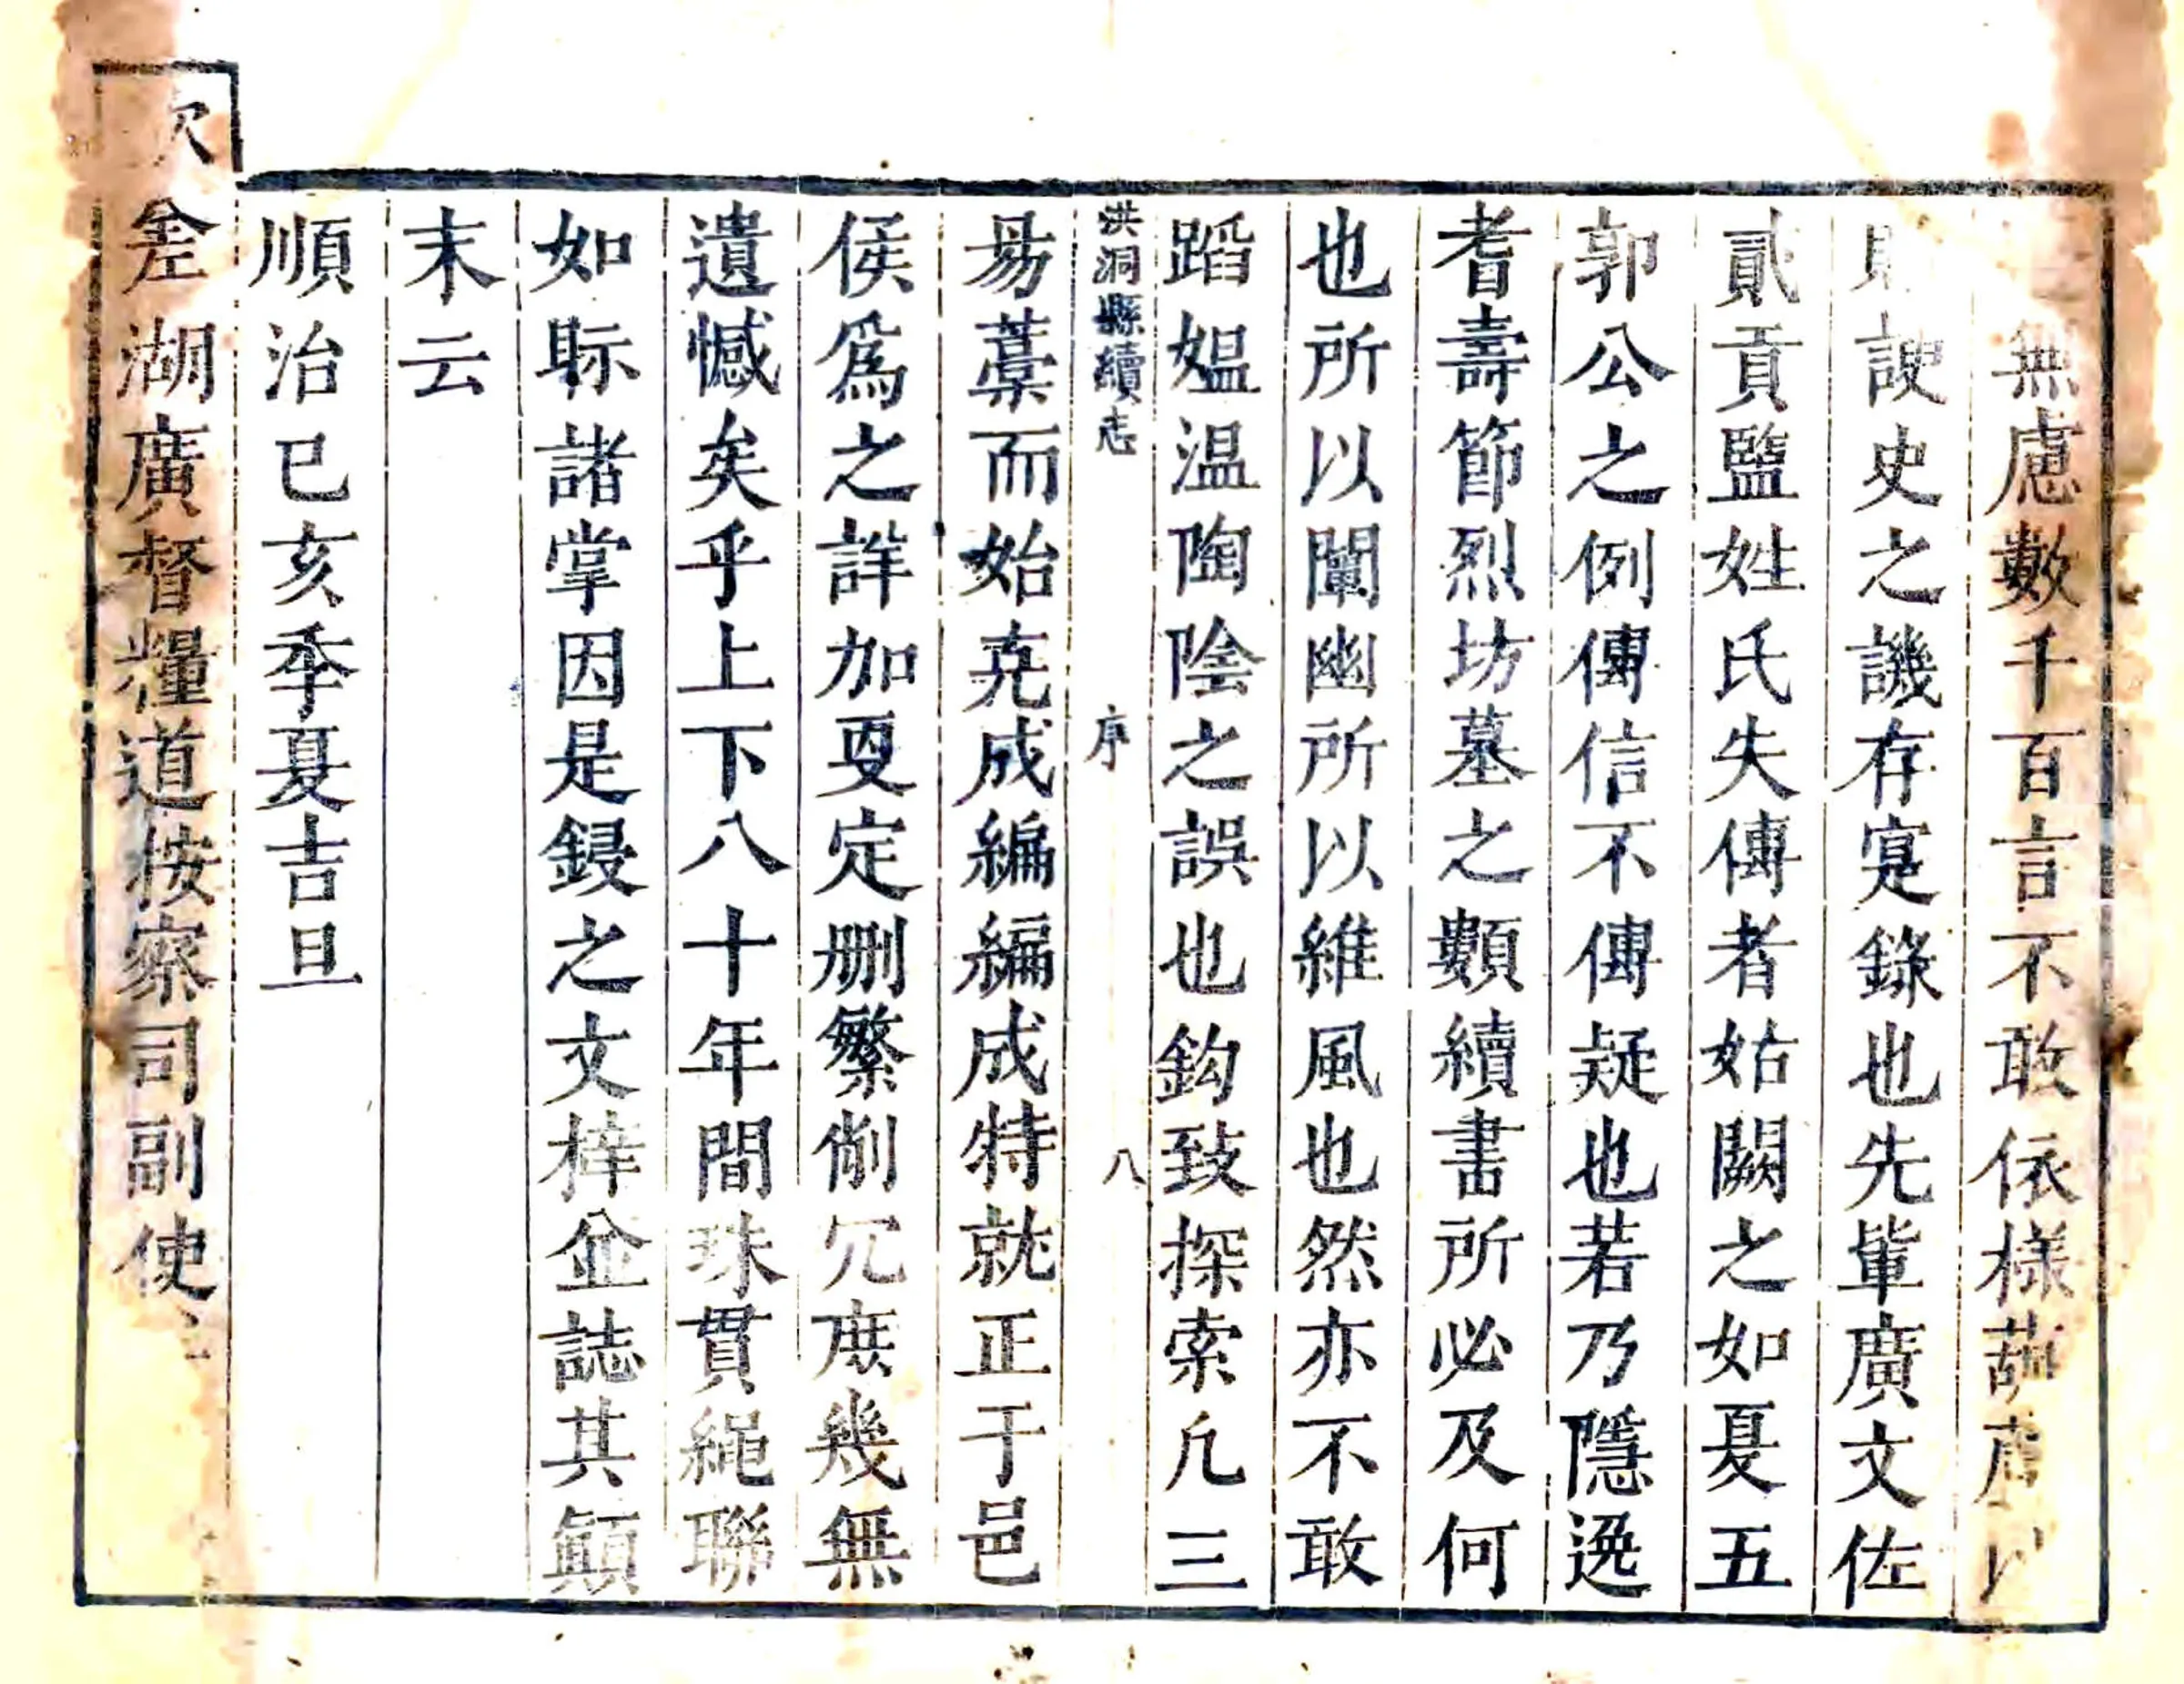 無慮數千百言不敢依樣葫蘆以
諛史之譏存寔錄也先軰廣文佐
貳貢監姓氏失傳者姑闕之如夏五
郭公之例傳信不傳疑也若乃隱逸
耆壽節烈坊墓之類續書所必及何
也所以闡幽所以維風也然亦不敢
蹈媪温陶陰之誤也鈎致探索凢三
洪洞縣續志 序 八
昜藁而始克成編編成特就正于邑
侯爲之詳加㪅定删繁削冗庻幾無
遺憾矣乎上下八十年間珠貫繩聯
如眎諸掌因是鋟之文梓並誌其顛
末云
順治已亥季夏吉旦
欽差湖廣督糧道按察司副使